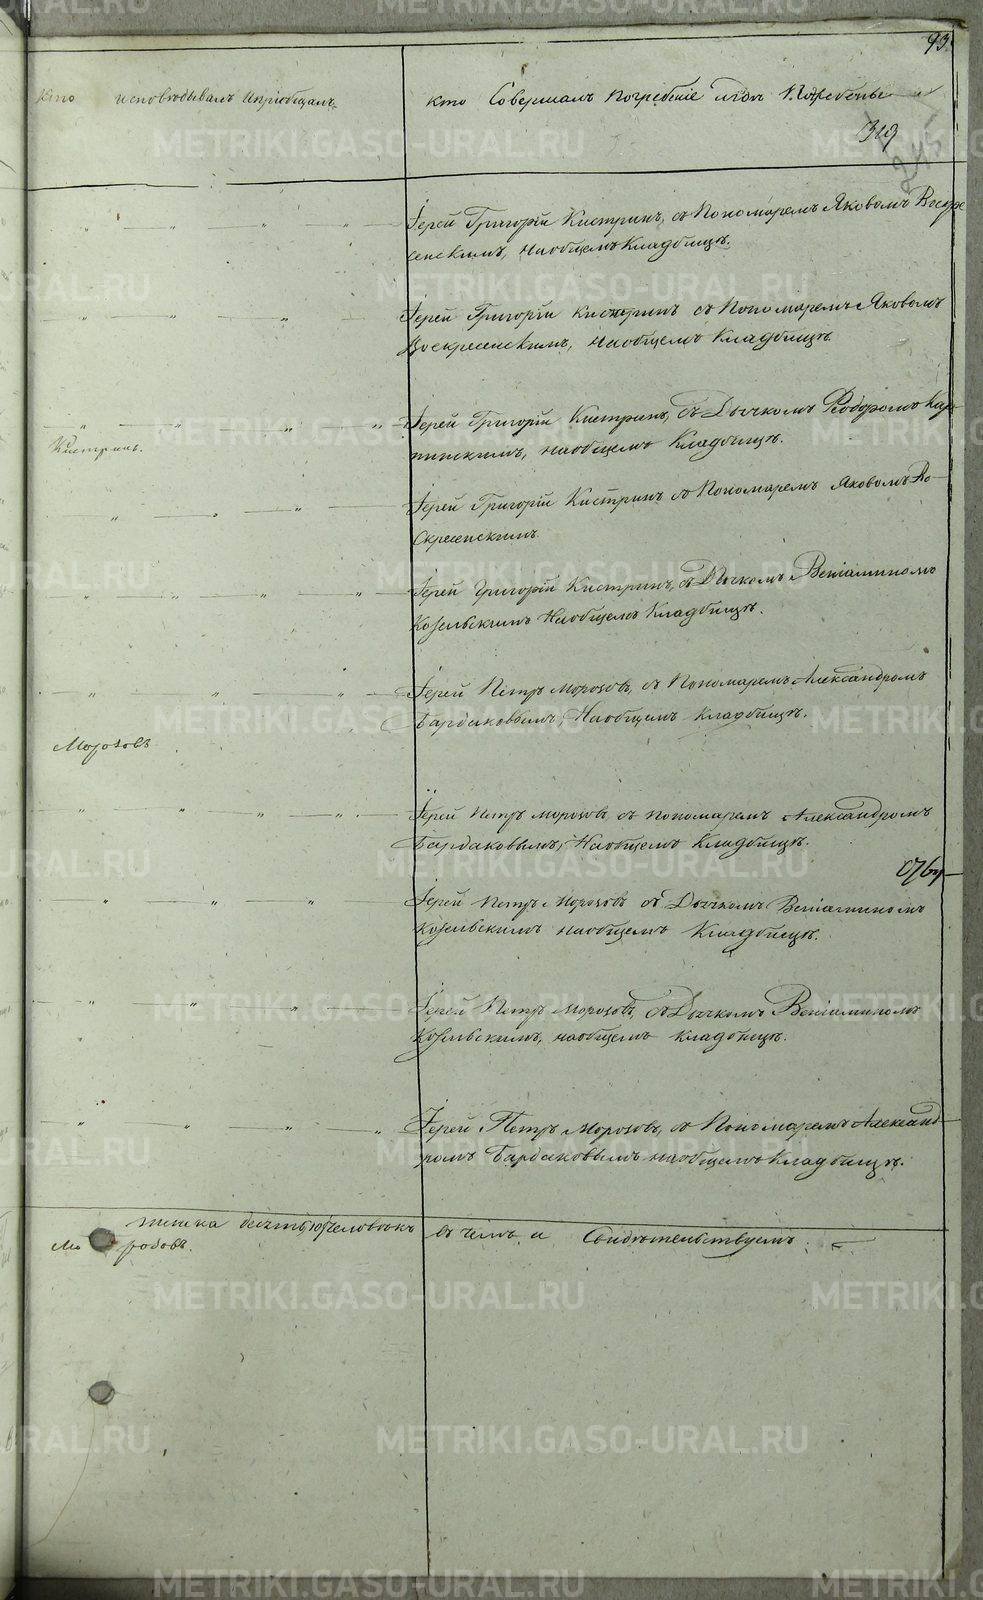 93.
Кто исповѣдывалъ и пріобщалъ.
кто Совершалъ погребеніе и гдѣ Погребены
319
Іерей Григорій Кистринъ, съ Пономаремъ Яковомъ Воскре
сенскимъ, наобщемъ Кладбищѣ.
Іерей Григорій Кистринъ съ Пономаремъ Яковомъ
Воскресенскимъ, наобщемъ Кладбищѣ
Іерей Григорій Кистринъ, съ Дьячкомъ Ѳеодоромъ Кар
пинскимъ, наобщемъ Кладбищѣ.
Кистринъ.
Іерей Григорій Кистринъ съ Пономаремъ Яковомъ Во-
скресенскимъ
Іерей Григорій Кистринъ, съ Дьячкомъ Веніаминомъ
Козельскимъ Наобщемъ Кладбищѣ.
Іерей Петръ Морозовъ, съ Пономаремъ Александромъ
Бардаковымъ, Наобщемъ кладбищѣ.
Морозовъ
Іерей Петръ Морозовъ съ пономаремъ Александромъ
Бардаковымъ, Наобщемъ Кладбищѣ.
Іерей Петръ Морозовъ съ Дьячкомъ Веніаминомъ
Козельскимъ наобщемъ Кладбищѣ.
Іерей Петръ Морозовъ, съ Дьячкомъ Веніаминомъ
Козельскимъ, наобщемъ кладбищѣ.
Іерей Петръ Морозовъ, съ Пономаремъ Александ-
ромъ Бардаковымъ наобщемъ Кладбищѣ.
человѣкъ въ чемъ и Свидѣтельствуемъ.
METRIKI.GASO-URAL.RU